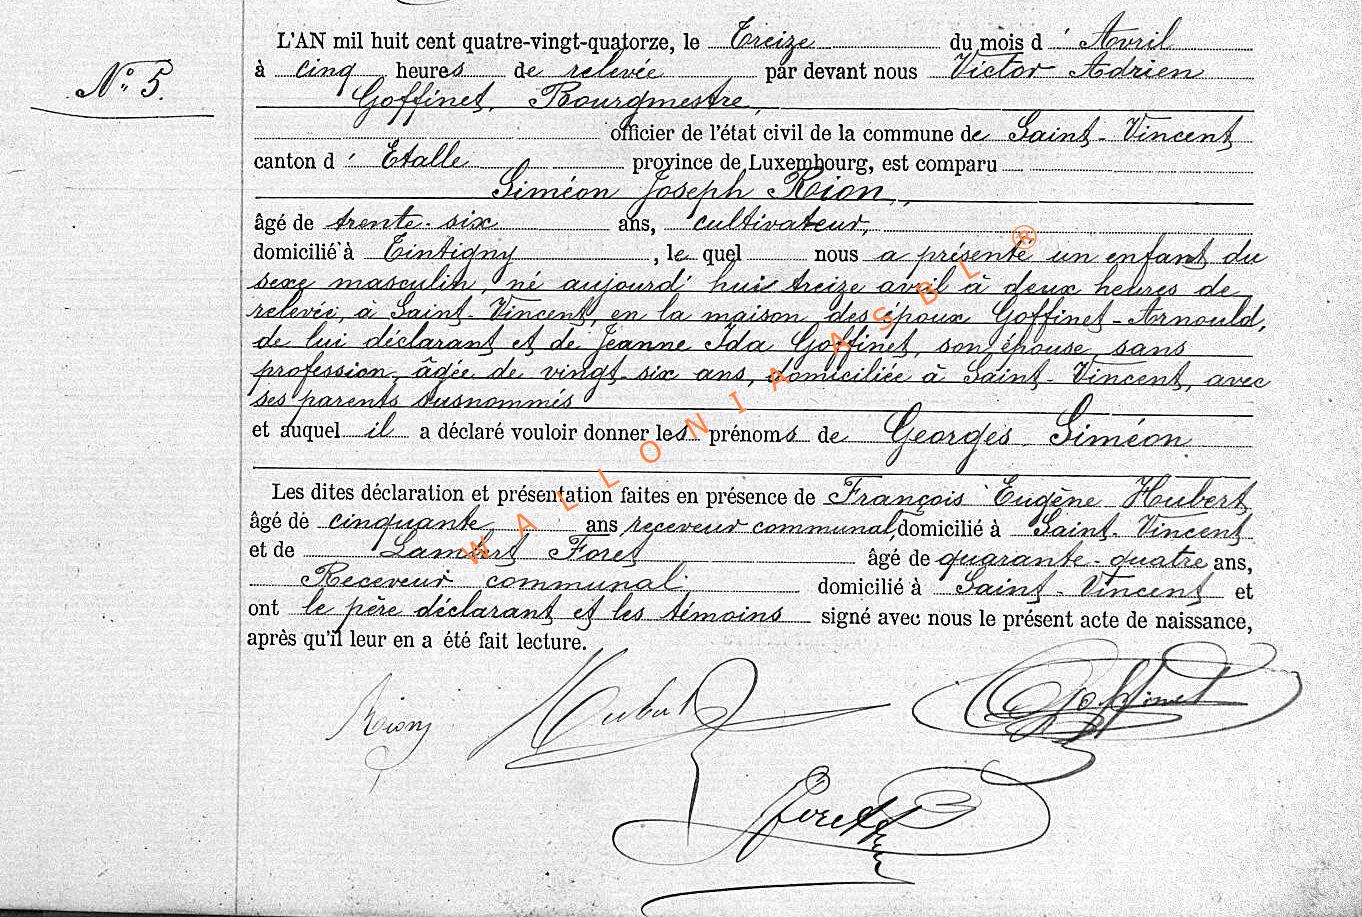 L'AN mil huit cent quatre-vingt-quatorze, le Treize du mois d' Avril
N° 5.
à cinq heures de relevée par devant nous Victor Adrien
Goffinet, Bourgmestre,
officier de l'état civil de la commune de Saint-Vincent
canton d' Etalle province de Luxembourg, est comparu
Siméon Joseph Rion,
âgé de trente-six ans, cultivateur,
domicilié à Tintigny, le quel nous a présenté un enfant du
sexe masculin, né aujourd'hui treize avril à deux heures de
relevée, à Saint-Vincent, en la maison des époux Goffinet-Arnould,
de lui déclarant et de Jeanne Ida Goffinet, son épouse, sans
profession, âgée de vingt-six ans, domiciliée à Saint-Vincent, avec
ses parents susnommés
et auquel il a déclaré vouloir donner les prénoms de Georges Siméon
Les dites déclaration et présentation faites en présence de François Eugène Hubert
âgé de cinquante ans receveur communal, domicilié à Saint-Vincent
et de Lambert Foret âgé de quarante-quatre ans,
Receveur communal domicilié à Saint-Vincent et
ont le père déclarant et les témoins signé avec nous le présent acte de naissance,
après qu'il leur en a été fait lecture.
Rion Hubert Goffinet
Foret
WALLONIA ASBL ®